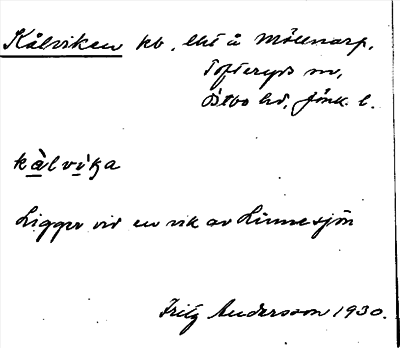 Kålviken hb, lht å Möcknarp,
Tofteryds sn,
Östbo hd, Jönk. l.
kàlvìka
Ligger vid en vik av Linnesjön
Fritz Andersson 1930.